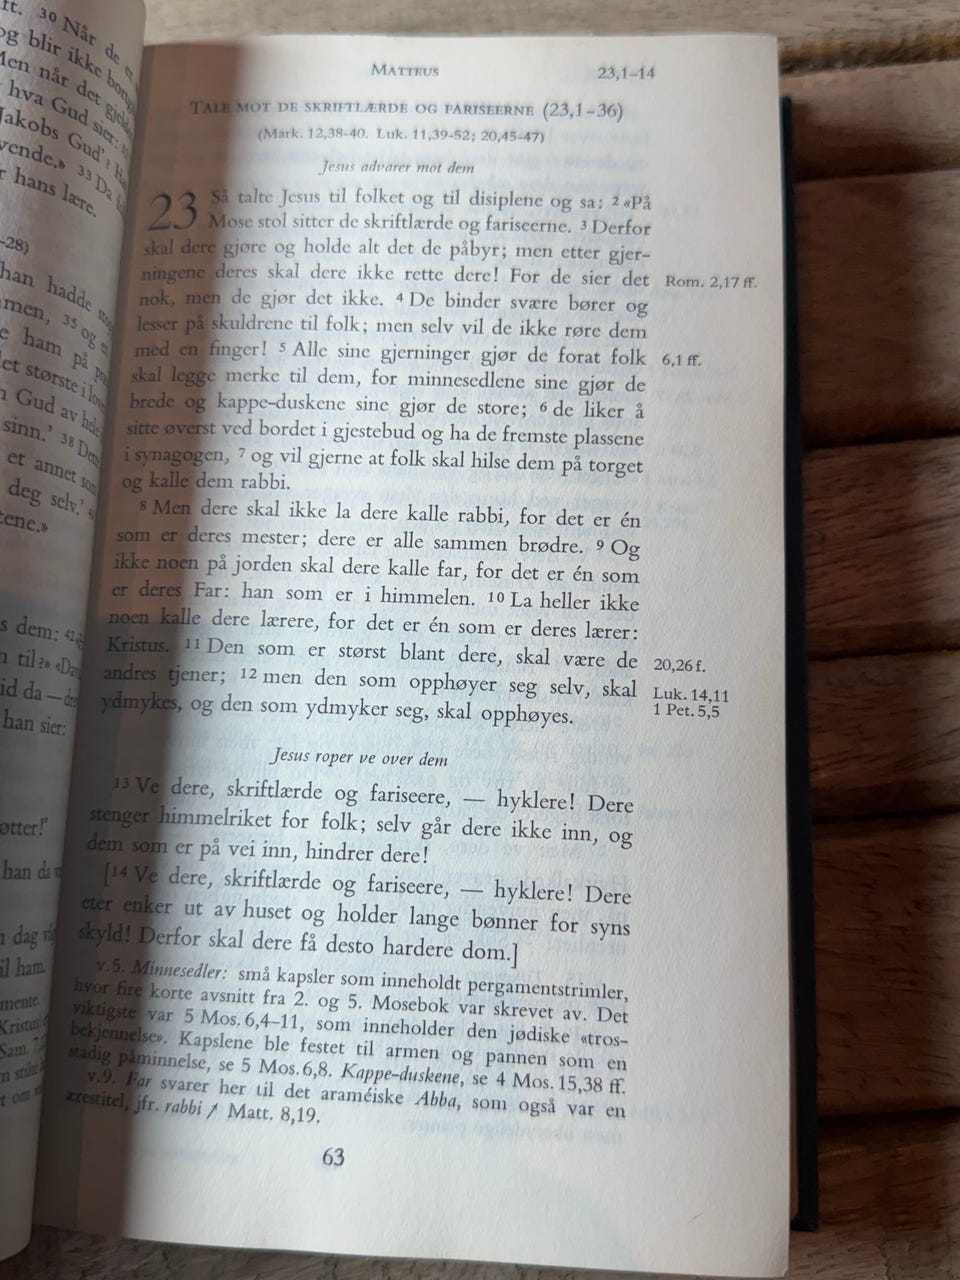 30 Når de
og blir ikke
Men når det
hva Gud sier:
Jakobs Gud'?
33 Da
hans lære.
-28)
han hadde
35 og
ham på
det største i
Gud av
sinn.' 38
et annet som
deg selv.'
dem: 42
til?»
da — dre
han sier:
han da
dag
til ham.
Kristus
Sam.
om
MATTEUS 23,1–14
TALE MOT DE SKRIFTLÆRDE OG FARISEERNE (23,1–36)
(Mark. 12,38-40. Luk. 11,39-52; 20,45-47)
Jesus advarer mot dem
23 Så talte Jesus til folket og til disiplene og sa: 2 «På
Mose stol sitter de skriftlærde og fariseerne. 3 Derfor
skal dere gjøre og holde alt det de påbyr; men etter gjer-
ningene deres skal dere ikke rette dere! For de sier det Rom. 2,17 ff.
nok, men de gjør det ikke. 4 De binder svære bører og
lesser på skuldrene til folk; men selv vil de ikke røre dem
med en finger! 5 Alle sine gjerninger gjør de forat folk 6,1 ff.
skal legge merke til dem, for minnesedlene sine gjør de
brede og kappe-duskene sine gjør de store; 6 de liker å
sitte øverst ved bordet i gjestebud og ha de fremste plassene
i synagogen, 7 og vil gjerne at folk skal hilse dem på torget
og kalle dem rabbi.
8 Men dere skal ikke la dere kalle rabbi, for det er én
som er deres mester; dere er alle sammen brødre. 9 Og
ikke noen på jorden skal dere kalle far, for det er én som
er deres Far: han som er i himmelen. 10 La heller ikke
noen kalle dere lærere, for det er én som er deres lærer:
Kristus. 11 Den som er størst blant dere, skal være de 20,26 f.
andres tjener; 12 men den som opphøyer seg selv, skal Luk. 14,11
ydmykes, og den som ydmyker seg, skal opphøyes. 1 Pet. 5,5
Jesus roper ve over dem
13 Ve dere, skriftlærde og fariseere, — hyklere! Dere
stenger himmelriket for folk; selv går dere ikke inn, og
dem som er på vei inn, hindrer dere!
[14 Ve dere, skriftlærde og fariseere, — hyklere! Dere
eter enker ut av huset og holder lange bønner for syns
skyld! Derfor skal dere få desto hardere dom.]
v.5. Minnesedler: små kapsler som inneholdt pergamentstrimler,
hvor fire korte avsnitt fra 2. og 5. Mosebok var skrevet av. Det
viktigste var 5 Mos. 6,4–11, som inneholder den jødiske «tros-
bekjennelse». Kapslene ble festet til armen og pannen som en
stadig påminnelse, se 5 Mos. 6,8. Kappe-duskene, se 4 Mos. 15,38 ff.
v.9. Far svarer her til det araméiske Abba, som også var en
ærestitel, jfr. rabbi / Matt. 8,19.
63